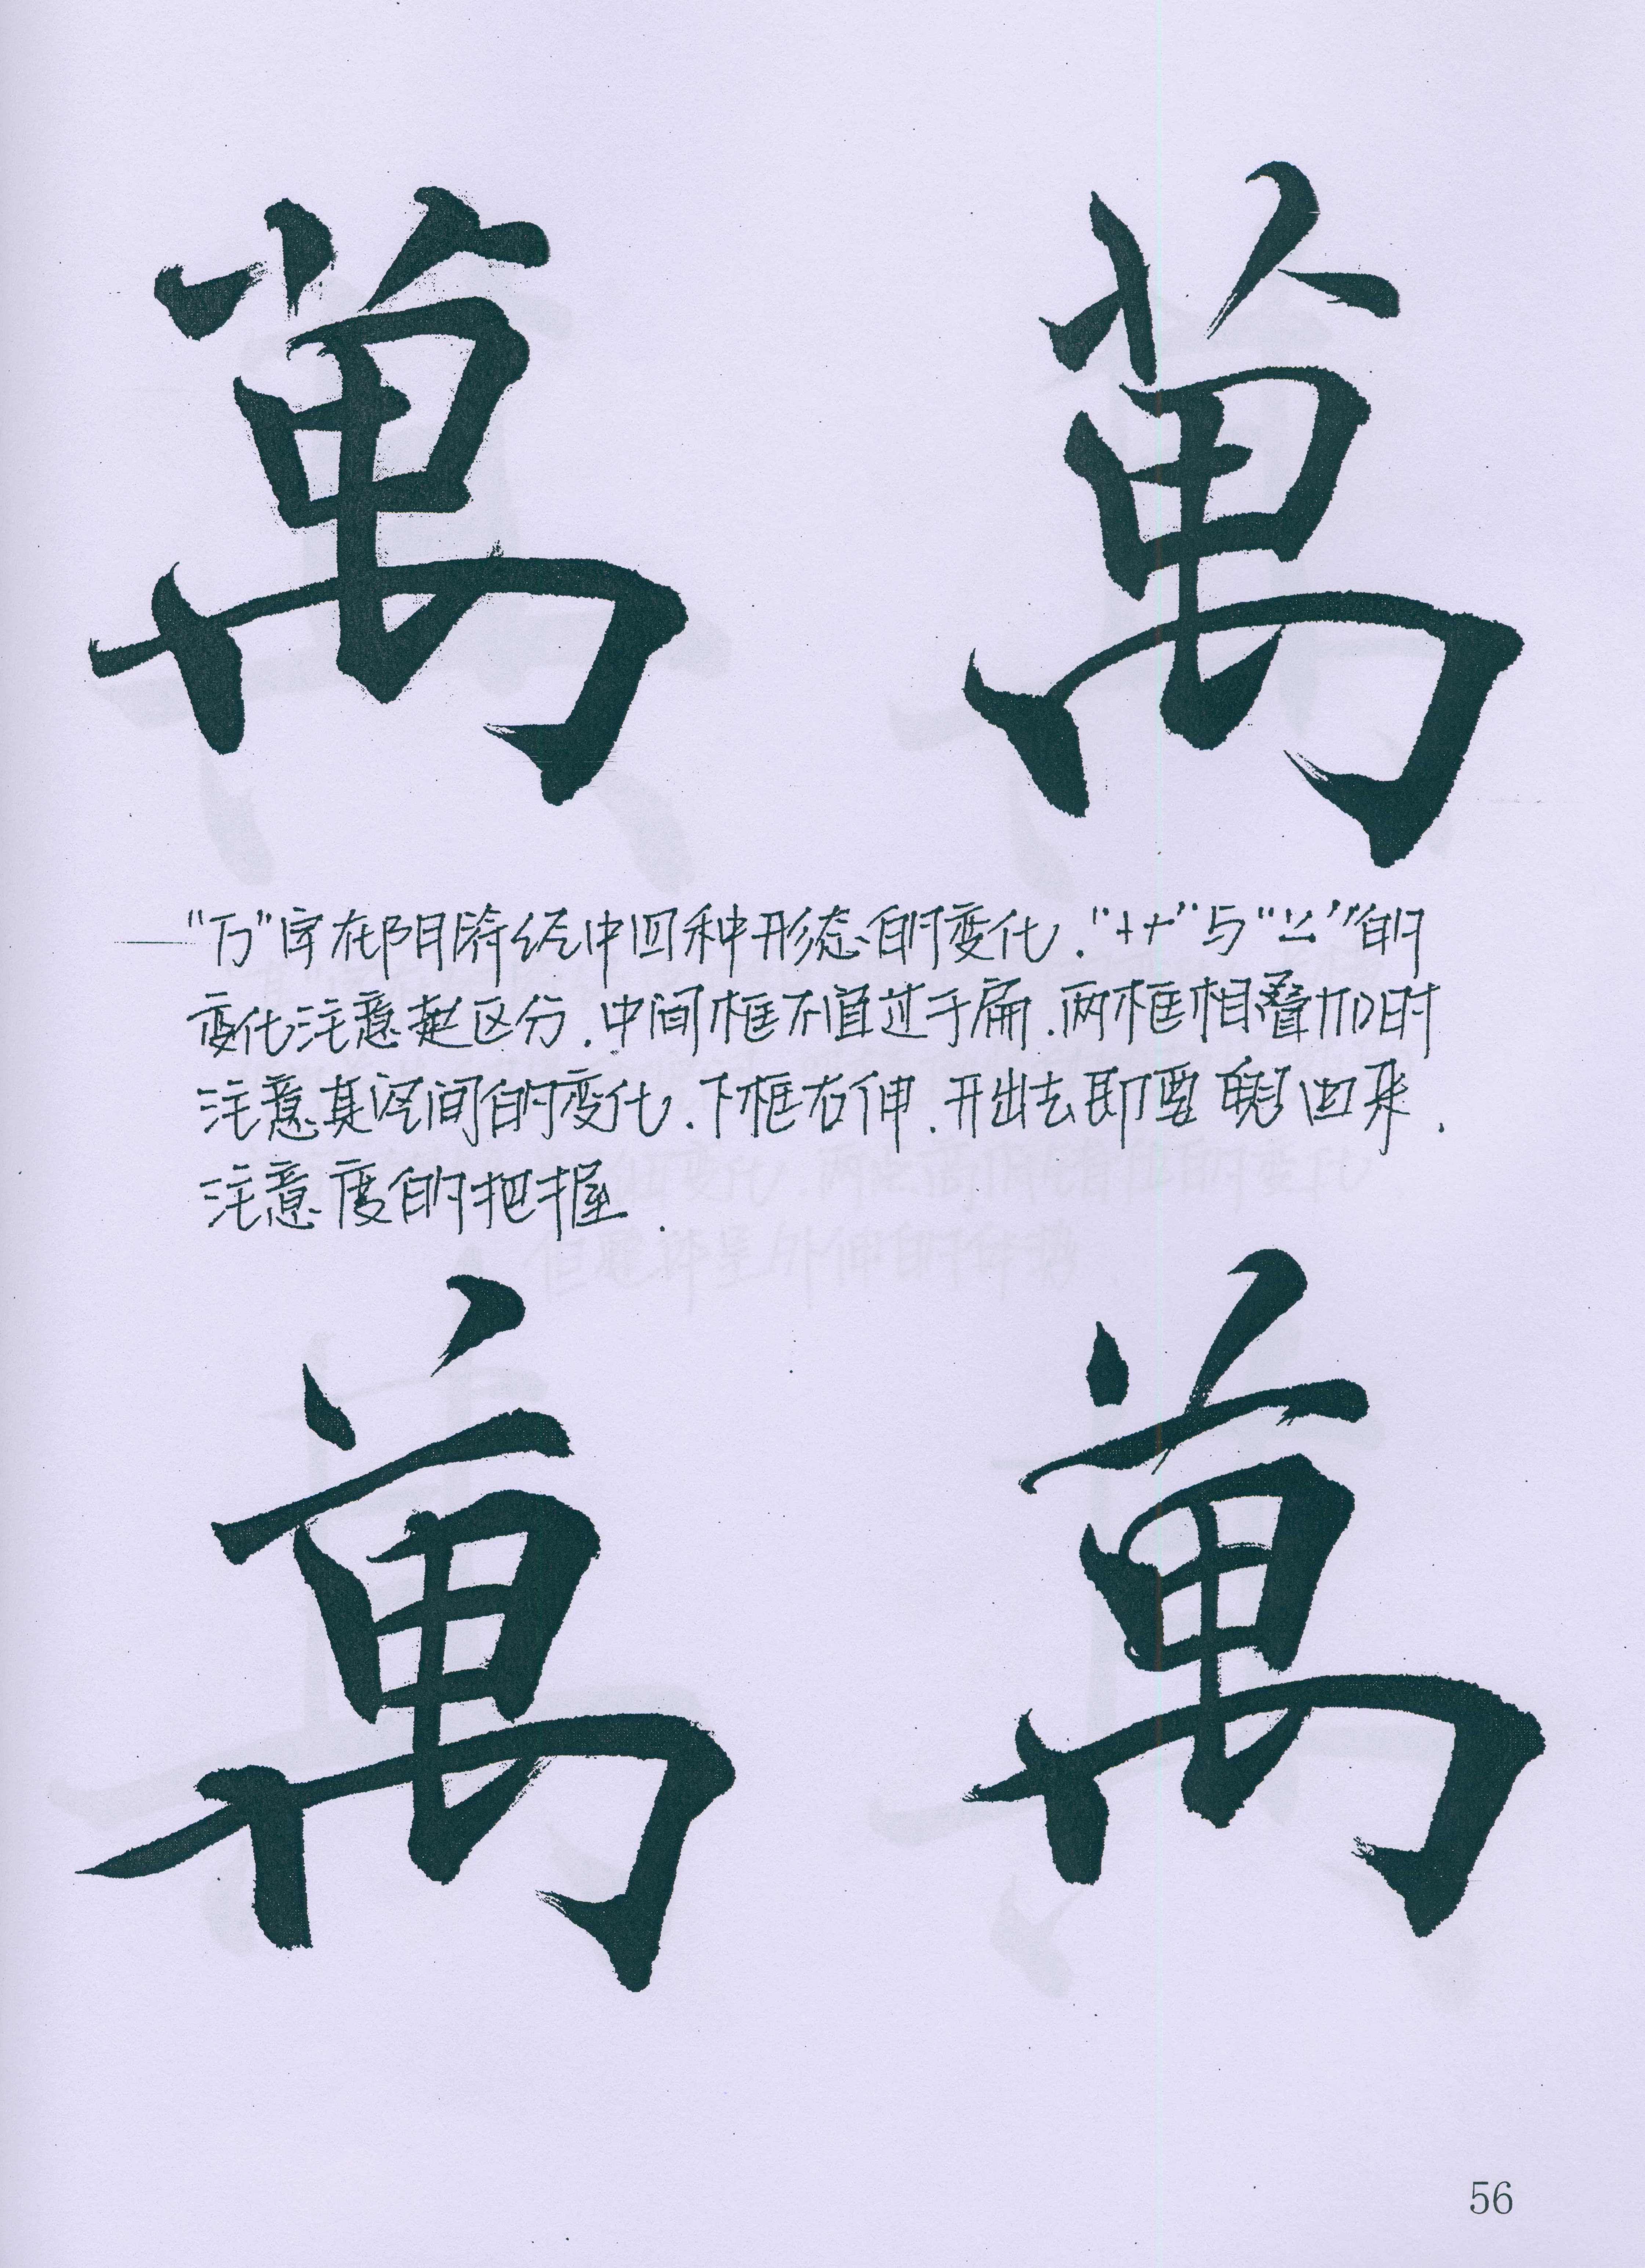 萬 萬
“万”字在阴符经中四种形态的变化.“艹”与“䒑”的
变化注意其区分.中间框不宜过于扁.两框相叠加时
注意其空间的变化.下框右伸.开出去即要 回来.
注意度的把握.
萬 萬
56